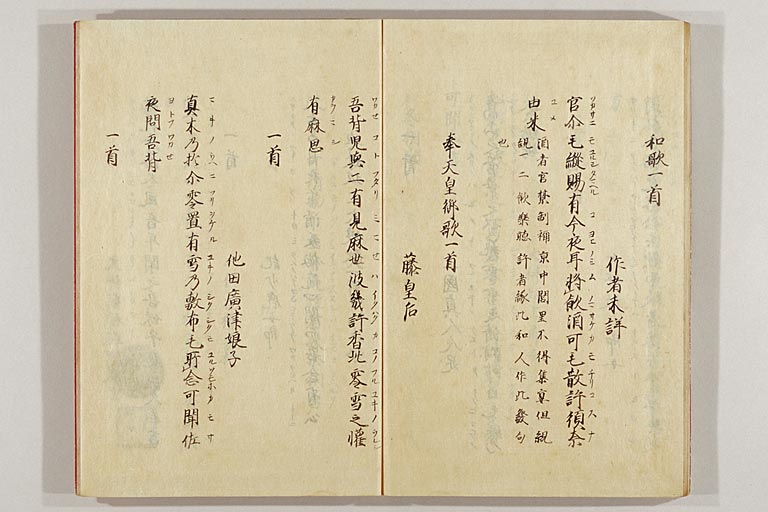 和歌一首
作者未詳
官尒毛縱賜有今夜耳將飲酒可毛散許須奈
由米
酒者官禁制稱京中閭里不得集宴但親
親一二飲樂聽許者縁此和人作此發句
也
奉天皇御歌一首
藤皇后
吾背児與二有見麻世波幾許香此零雪之懽
有麻思
一首
他田廣津娘子
真木乃於尒零置有雪乃敷布毛所念可聞佐
夜問吾背
一首